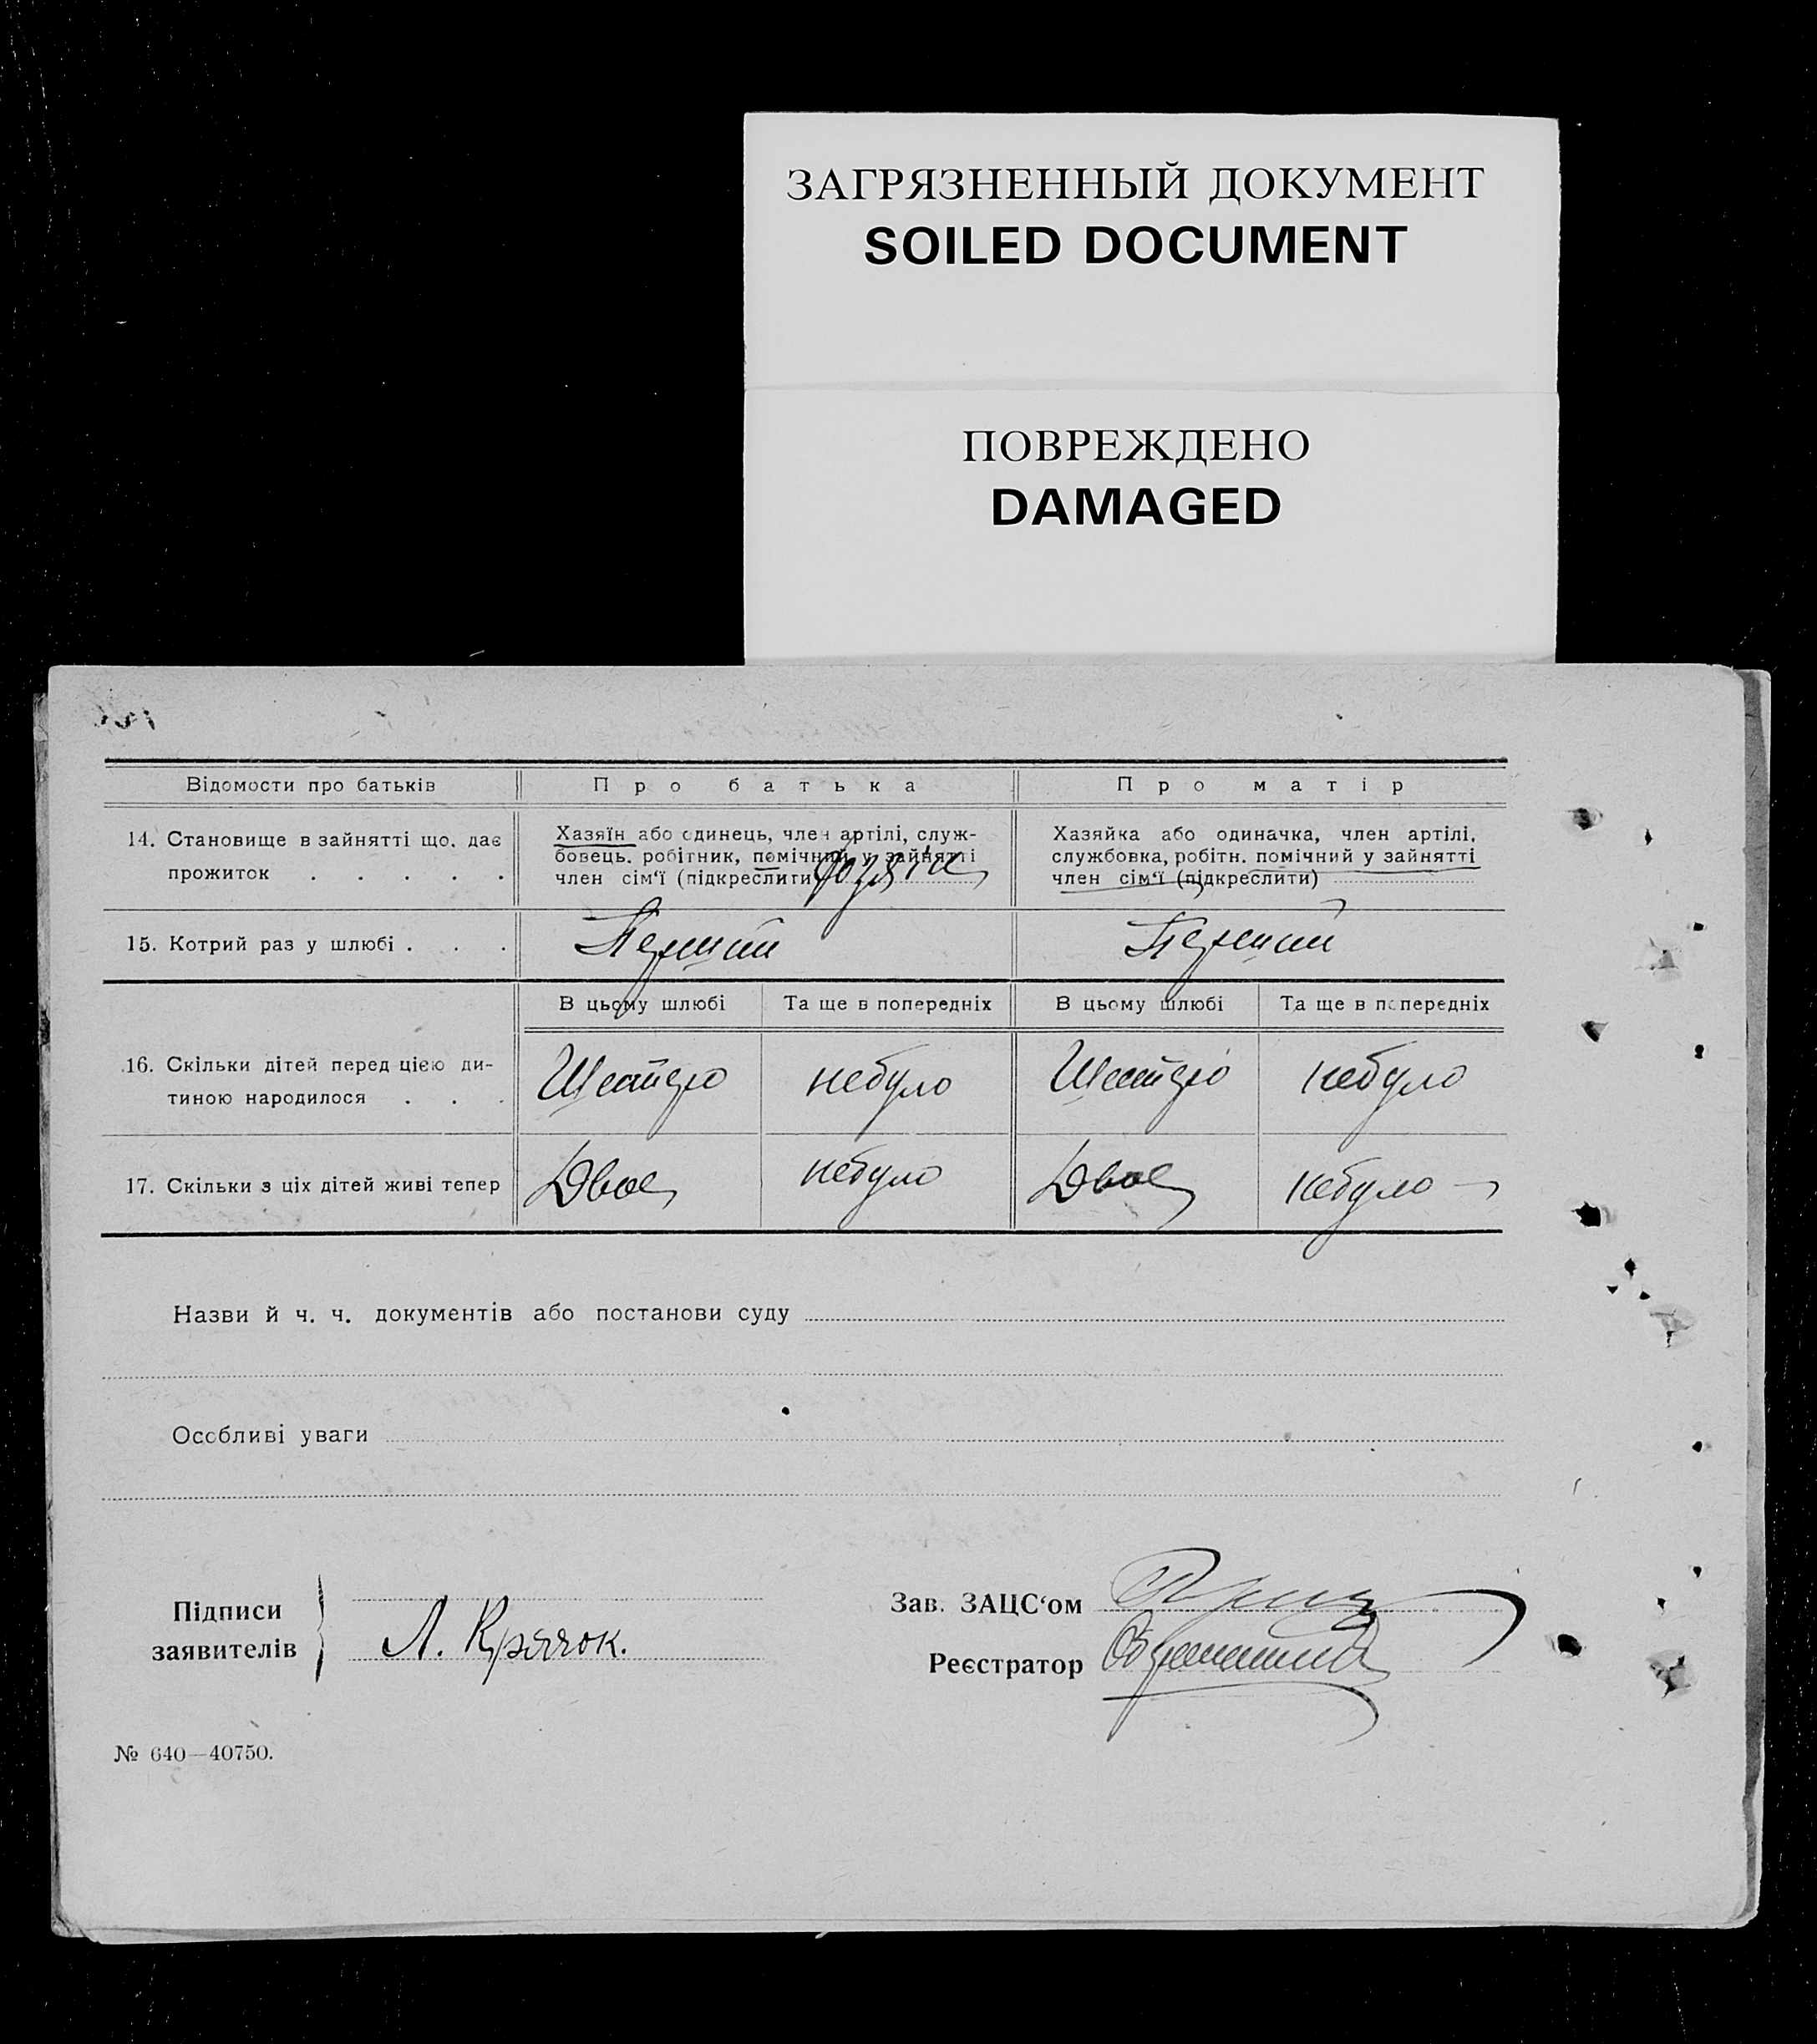 ЗАГРЯЗНЕННЫЙ ДОКУМЕНТ
SOILED DOCUMENT
ПОВРЕЖДЕНО
DAMAGED
Відомости про батьків
Про батька
Про матір
14. Становище в зайнятті що, дає
прожиток . . . . .
Хазяїн або одинець, член артілі, служ-
бовець. робітник, помічний у зайнятті
член сім‘ї (підкреслити)
Хазяйка або одиначка, член артілі,
службовка, робітн. помічний у зайнятті
член сім‘ї (підкреслити)
15. Котрий раз у шлюбі . . .
Перший
Перший
В цьому шлюбі
Та ще в попередніх
В цьому шлюбі
Та ще в попередніх
16. Скільки дітей перед цією ди-
тиною народилося . . .
Шестеро
небуло
Шестеро
небуло
17. Скільки з ціх дітей живі тепер
Двоє
небуло
Двоє
небуло
Назви й ч. ч. документів або постанови суду
Особливі уваги
Підписи
заявителів
Л. Крячок.
Зав. ЗАЦС‘ом
Реєстратор
№ 640—40750.